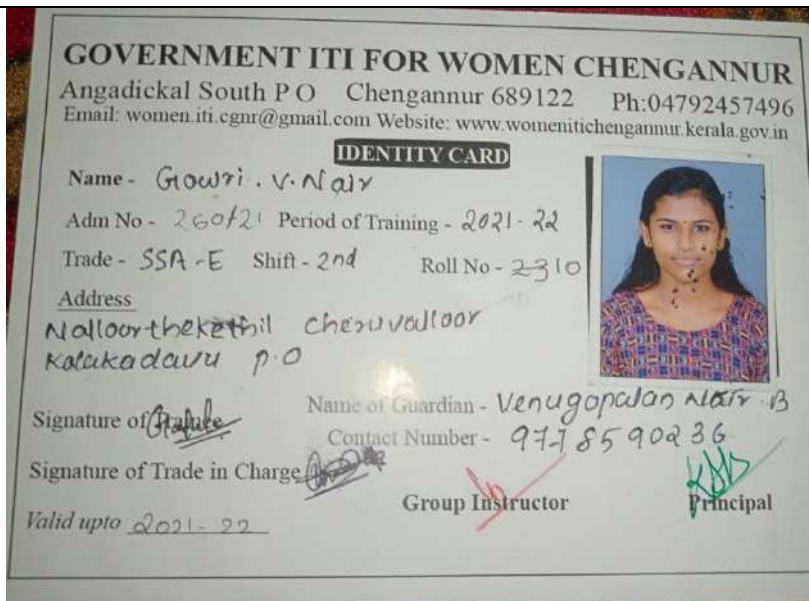 GOVERNMENT ITI FOR WOMEN CHENGANNUR
Angadickal South P O Chengannur 689122 Ph:04792457496
Email: women.iti.cgnr@gmail.com Website: www.womenitichengannur.kerala.gov.in
IDENTITY CARD
Name - Gowri. V. Nair
Adm No - 260/21 Period of Training - 2021-22
Trade - SSA-E Shift - 2nd Roll No - 2310
Address
Nalloorthekethil Cheruvalloor
Kalakadavu P.O
Signature of
Name of Guardian - Venugopalan Nair. B
Contact Number - 9778590236
Signature of Trade in Charge
Group Instructor Principal
Valid upto 2021-22